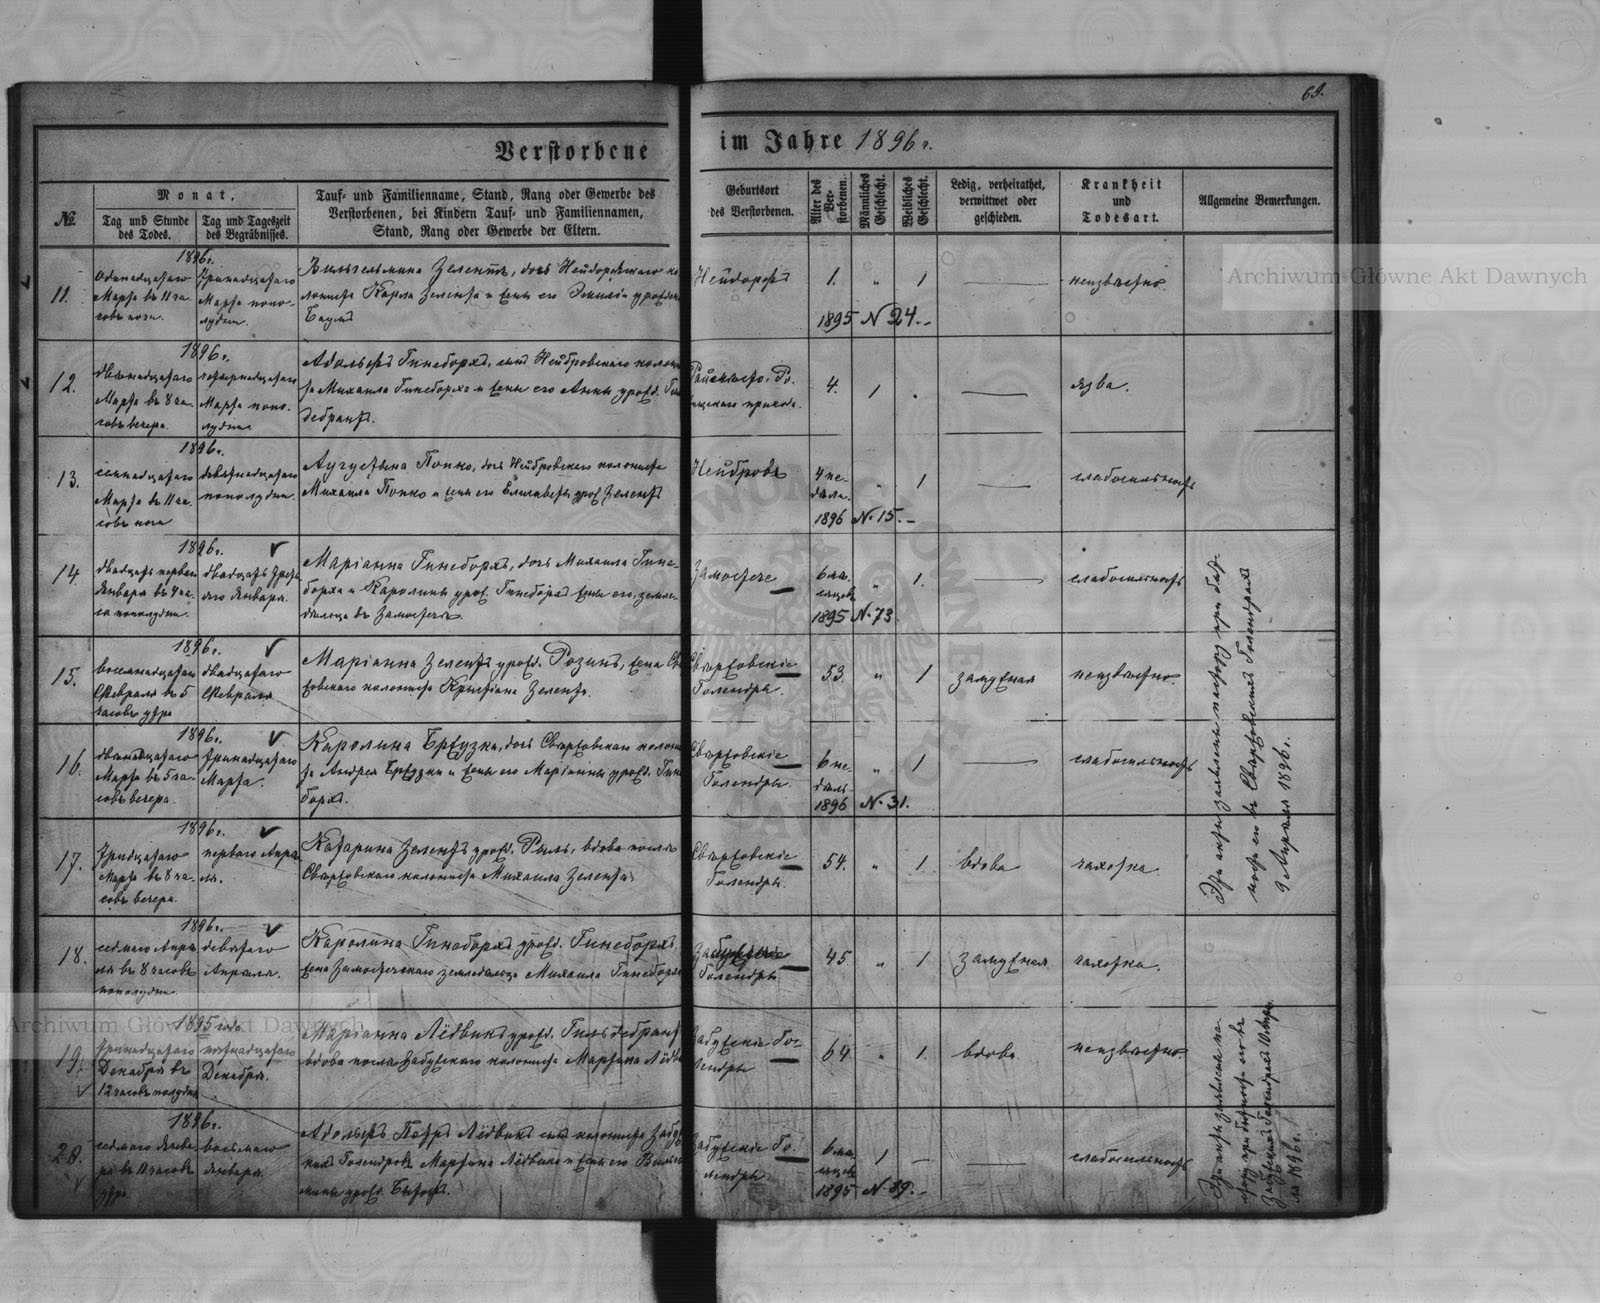 69.
Verstorbene im Jahre 1896 г.
№
Monat,
Tag und Stunde des Todes.
Tag und Tageszeit des Begräbnisses.
Tauf- und Familienname, Stand, Rang oder Gewerbe des
Verstorbenen, bei Kindern Tauf- und Familiennamen,
Stand, Rang oder Gewerbe der Eltern.
Geburtsort
des Verstorbenen.
Alter des Verstorbenen.
Männliches Geschlecht.
Weibliches Geschlecht.
Ledig, verheirathet,
verwittwet oder
geschieden.
Krankheit
und
Todesart.
Allgemeine Bemerkungen.
11.
1896 г.
одинадцатаго
Марта въ 11 ча-
совъ ночи.
Тринадцатаго
Марта попо-
лудни.
Вильгельмина Зелентъ, дочь Нейдорфскаго ко-
лониста Карла Зелента и жены его Эмилiи урожден
Баумъ
Нейдорфъ
1.
„
1
неизвѣстно.
1895 N 24.-
12.
1896 г.
двѣнадцатаго
Марта въ 8 ча-
совъ вечера.
четырнадцатаго
Марта попо-
лудни
Адольфъ Гинеборхъ, сынъ Нейбровскаго колони
та Михаила Гинеборха и жены его Анны урожд. Гил
дебрантъ.
4.
1
„
язва.
13.
1896 г.
Марта въ 11 ча-
совъ ночи
девятнадцатаго
пополудни
Аугустына Попко, дочь Нейбровскаго колониста
Михаила Попко и жены его Елисаветы урож. Зелентъ
Нейбровъ
4 не-
дѣли.
„
1
слабосильность
1896 N. 15.-
14.
1896 г.
двадцать перваго
Января въ 4 ча-
са пополудни.
двадцать треть
яго Января.
Марiанна Гинеборхъ, дочь Михаила Гине-
борха и Каролины урож. Гинеборхъ жены его, земле-
дѣльца въ Замостечѣ.
Замостече
6 мѣ-
сяцевъ
„
1.
слабосильность
1895 N. 73
15.
1896 г.
восемнадцатаго
Февраля въ 5
часовъ утра
двадцатаго
Февраля
Марiанна Зелентъ урожд. Розинъ, жена Св
жовскаго колониста Кристiана Зелента.
Свержовскiе
Голендры.
53.
„
1
замужная
неизвѣстно.
16.
1896 г.
двѣнадцатаго
Марта въ 5 ча-
совъ вечера.
тринадцатаго
Марта.
Каролина Брѣузка, дочь Свержовскаго колони
та Андрея Брѣузки и жены его Марiанны урожд. Гине
борхъ.
Свержовскiе
Голендры.
6 не-
дѣль
„
1
слабосильность
1896 N. 31.
17.
1896 г.
Тридцатаго
Марта въ 8 ча-
совъ вечера.
перваго Апрѣ
ля.
Катарина Зелентъ урожд. Рыль, вдова послѣ
Свержовскаго колониста Михаила Зелента
Свержовскiе
Голендры.
54.
„
1.
вдова
чахотка.
18.
1896 г.
седмаго Апрѣ
ля въ 8 часовъ
пополудни.
девятаго
Апрѣля.
Каролина Гинеборхъ урожд. Гинеборхъ,
жена Замостечскаго земледѣльца Михаила Гинеборха
Голендры
45.
„
1
замужная
чахотка.
19.
1895 года
тринадцатаго
Декабря въ
12 часовъ полудня
пятнадцатаго
Декабря.
Марiанна Лёдвикъ урожд. Гильдебрантъ
вдова послѣ Забужскаго колониста Мартина Лёдви
Забужскiе Го-
лендры
64
„
1.
вдова
неизвѣстно
20.
1896 г.
седмаго Янва-
ря въ 11 часовъ
утра
восьмаго
Января.
Адольфъ Петръ Лёдвикъ сынъ колониста Забуж
кихъ Голендровъ Мартина Лёдвика и жены его Вильге
мины урожд. Бытофъ.
Забужскiе Го-
лендры
6 мѣ
сяцевъ
1
слабосильность
1895 N. 89.-
9 Апрѣля 1896 г.
Archiwum Główne Akt Dawnych
Archiwum Główne Akt Dawnych